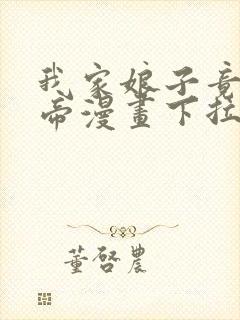 我家娘子竟
帝漫畫下拉
董啓農